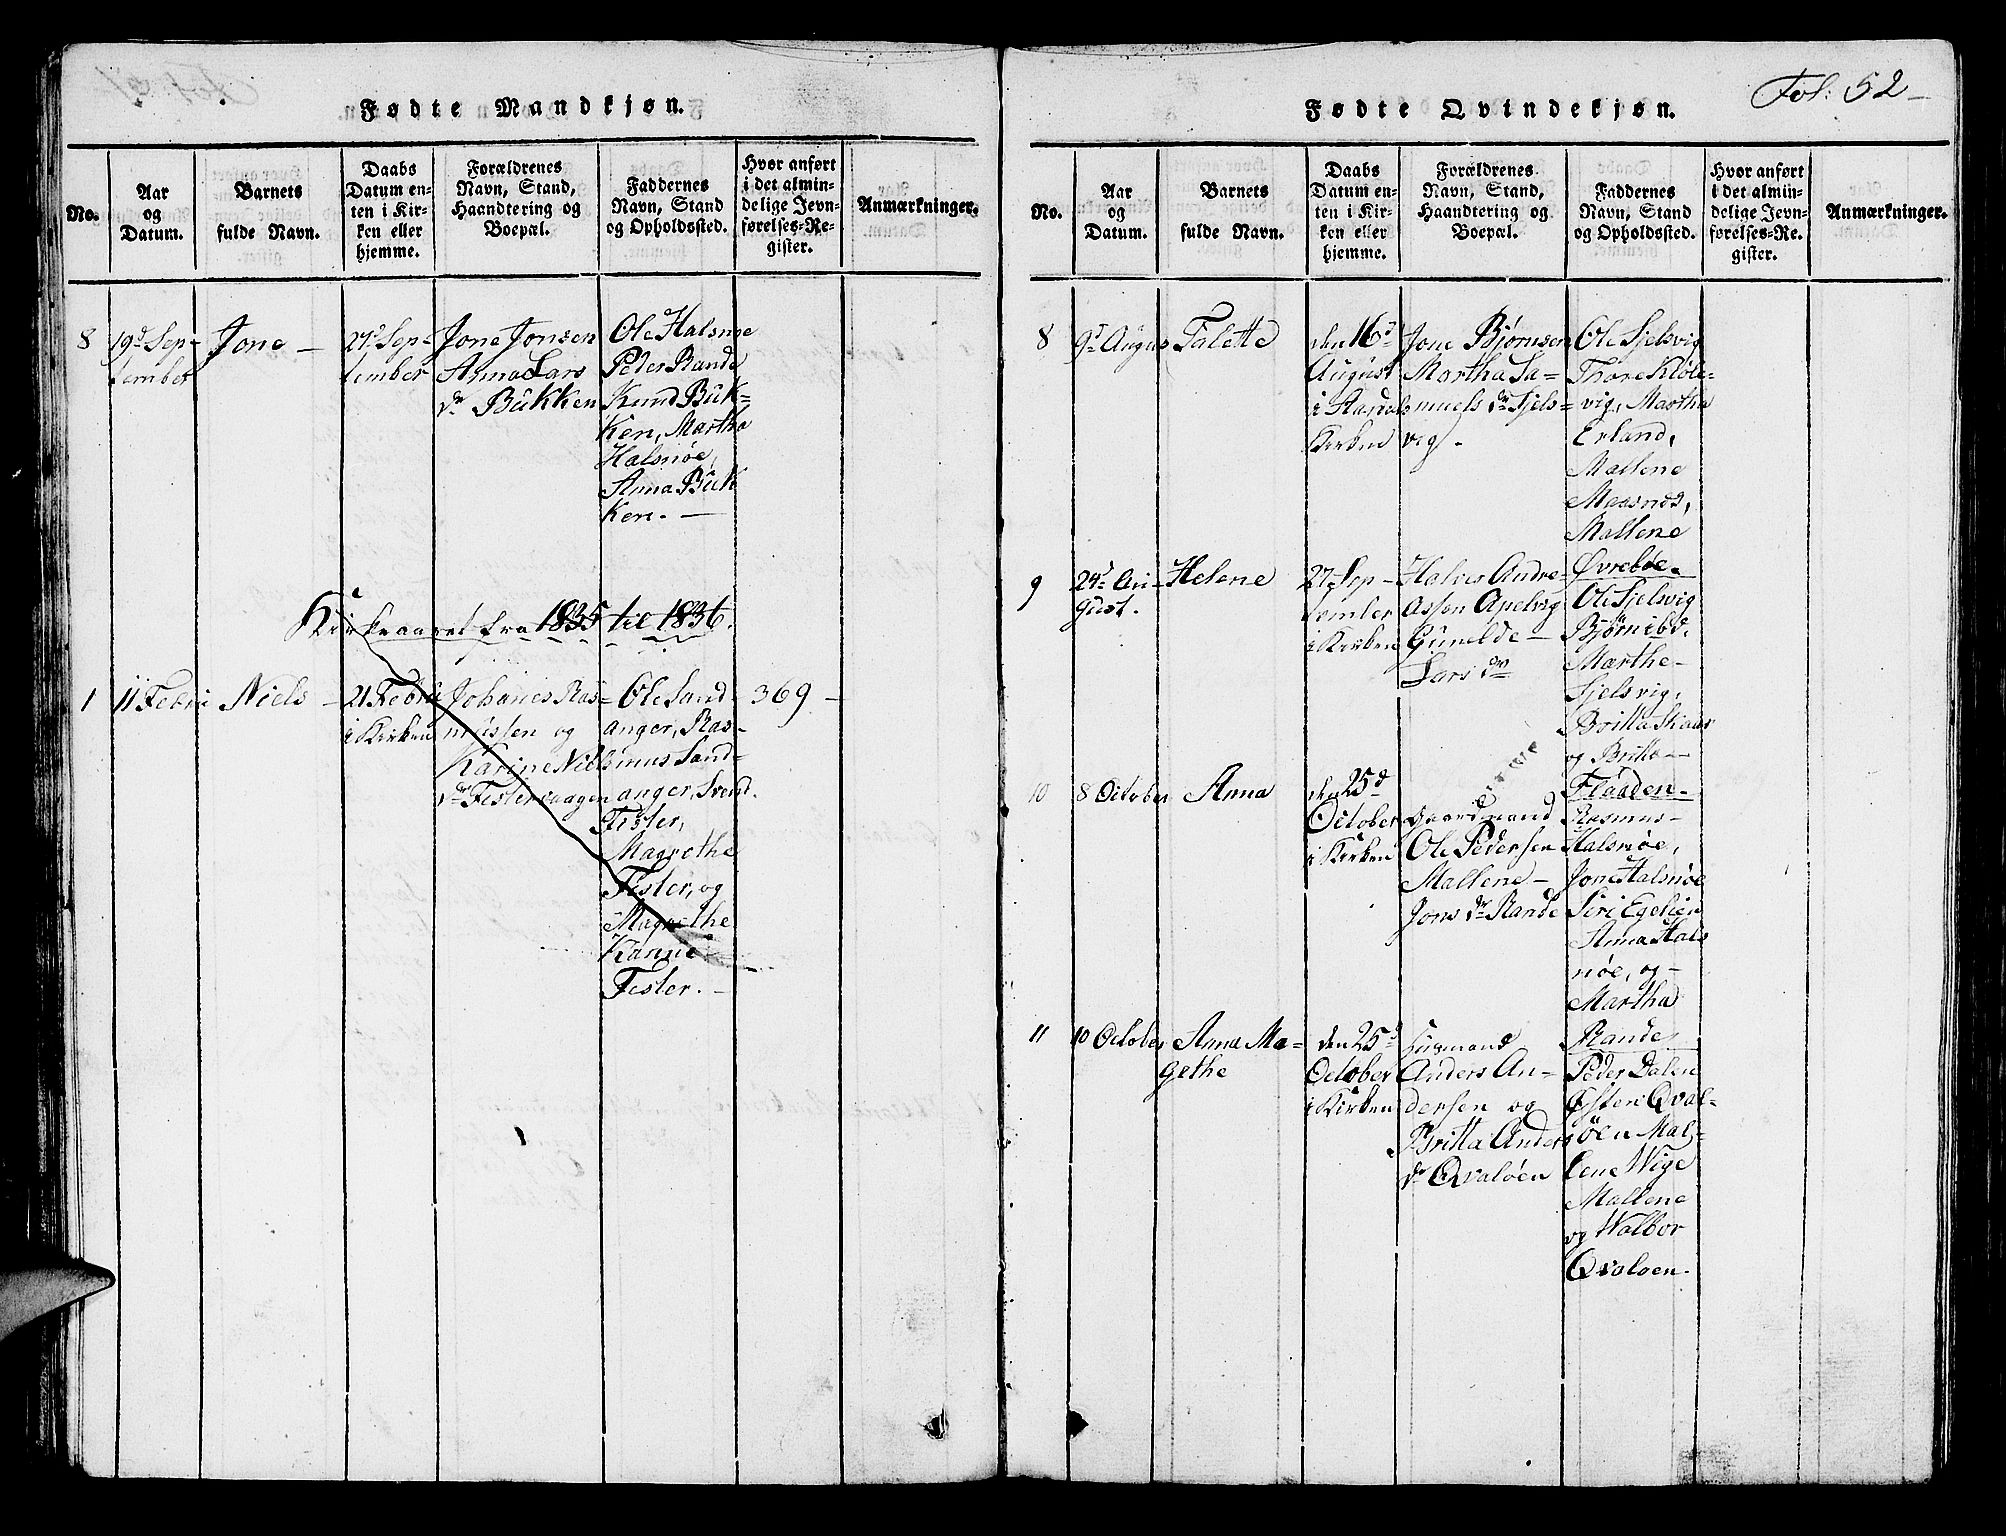 Fødte Mandkjøn.
No.
Aar
og
Datum.
Barnets
fulde Navn.
Daabs
Datum en-
ten i Kir-
ken eller
hjemme.
Forældrenes
Navn, Stand,
Haandtering og
Boepæl.
Faddernes
Navn, Stand
og Opholdssted.
Hvor anført
i det almin-
delige Jevn-
førelses-Re-
gister.
Anmærkninger.
8
19d Sep-
tember
Jone -
27d Sep-
tember
Jone Jonsen
Anna Lars
dr Bukken
Ole Halsnøe
Peder Rande
Knud Buk-
ken, Martha
Halsnøe,
Anna Buk
ken. -
Kirkeaaret fra 1835 til 1836.
1
11 Febru
Niels -
21 Febru
i Kirken
Johanes Ras-
mussen og
Karine Niels
dr Fistervaagen
Ole Sand-
anger, Ras-
mus Sand-
anger, Svend.
Fister,
Magrethe
Fister, og
Magrethe
Karine
Fister. -
369 -
Fol: 52 -
Fødte Qvindekjøn.
No.
Aar
og
Datum.
Barnets
fulde Navn.
Daabs
Datum en-
ten i Kir-
ken eller
hjemme.
Forældrenes
Navn, Stand,
Haandtering og
Boepæl.
Faddernes
Navn, Stand
og Opholdssted.
Hvor anført
i det almin-
delige Jevn-
førelses-Re-
gister.
Anmærkninger.
8
9d Augus
Talette
den 16d
August
i
Kirken
Jone Bjørnsen
Martha Sa-
muels dr Sjels-
vig.
Ole Sjelsvig
Thore Kløle-
vig, Martha
Erland,
Mallene
Maasnes,
Mallene
Øvrebøe.
9
24d Au-
gust.
Helene
27 Sep-
tember
i Kirken
Halvor Andre-
assen Apelvig
Gunelde -
Lars dr
Ole Sjelsvig
Bjørn ibd.
Marthe -
Sjelsvig,
Britta Skaar
og Britta -
Flaaden -
10
8 October
Anna
den 25d
October
i Kirken
Gaardmand
Ole Pedersen
Mallene -
Jons dr Rande
Rasmus -
Halsnøe,
Jone Halsnøe
Siri Egelien
Anna Hals
nøe, og -
Martha
Rande
11
10 October
Anna Ma-
gethe
den 25d
October
i Kirken
Husmand
Anders An-
dersen og
Britta Anders
dr Qvaløen
Peder Dalen
Østen Qval-
øen Mal-
lene Wige
Mallene
og Walbor
Qvaløen.